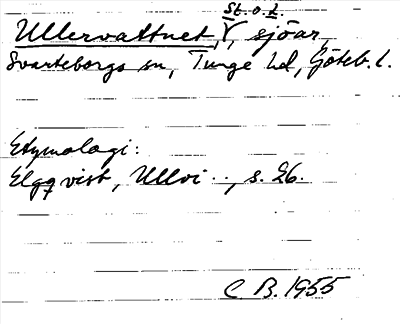 St. o. L.
Ullervattnet, V, sjöar,
Svarteborgs sn, Tunge hd, Göteb. l.
Etymologi:
Elgqvist, Ullvi.., s. 26.
C B. 1955